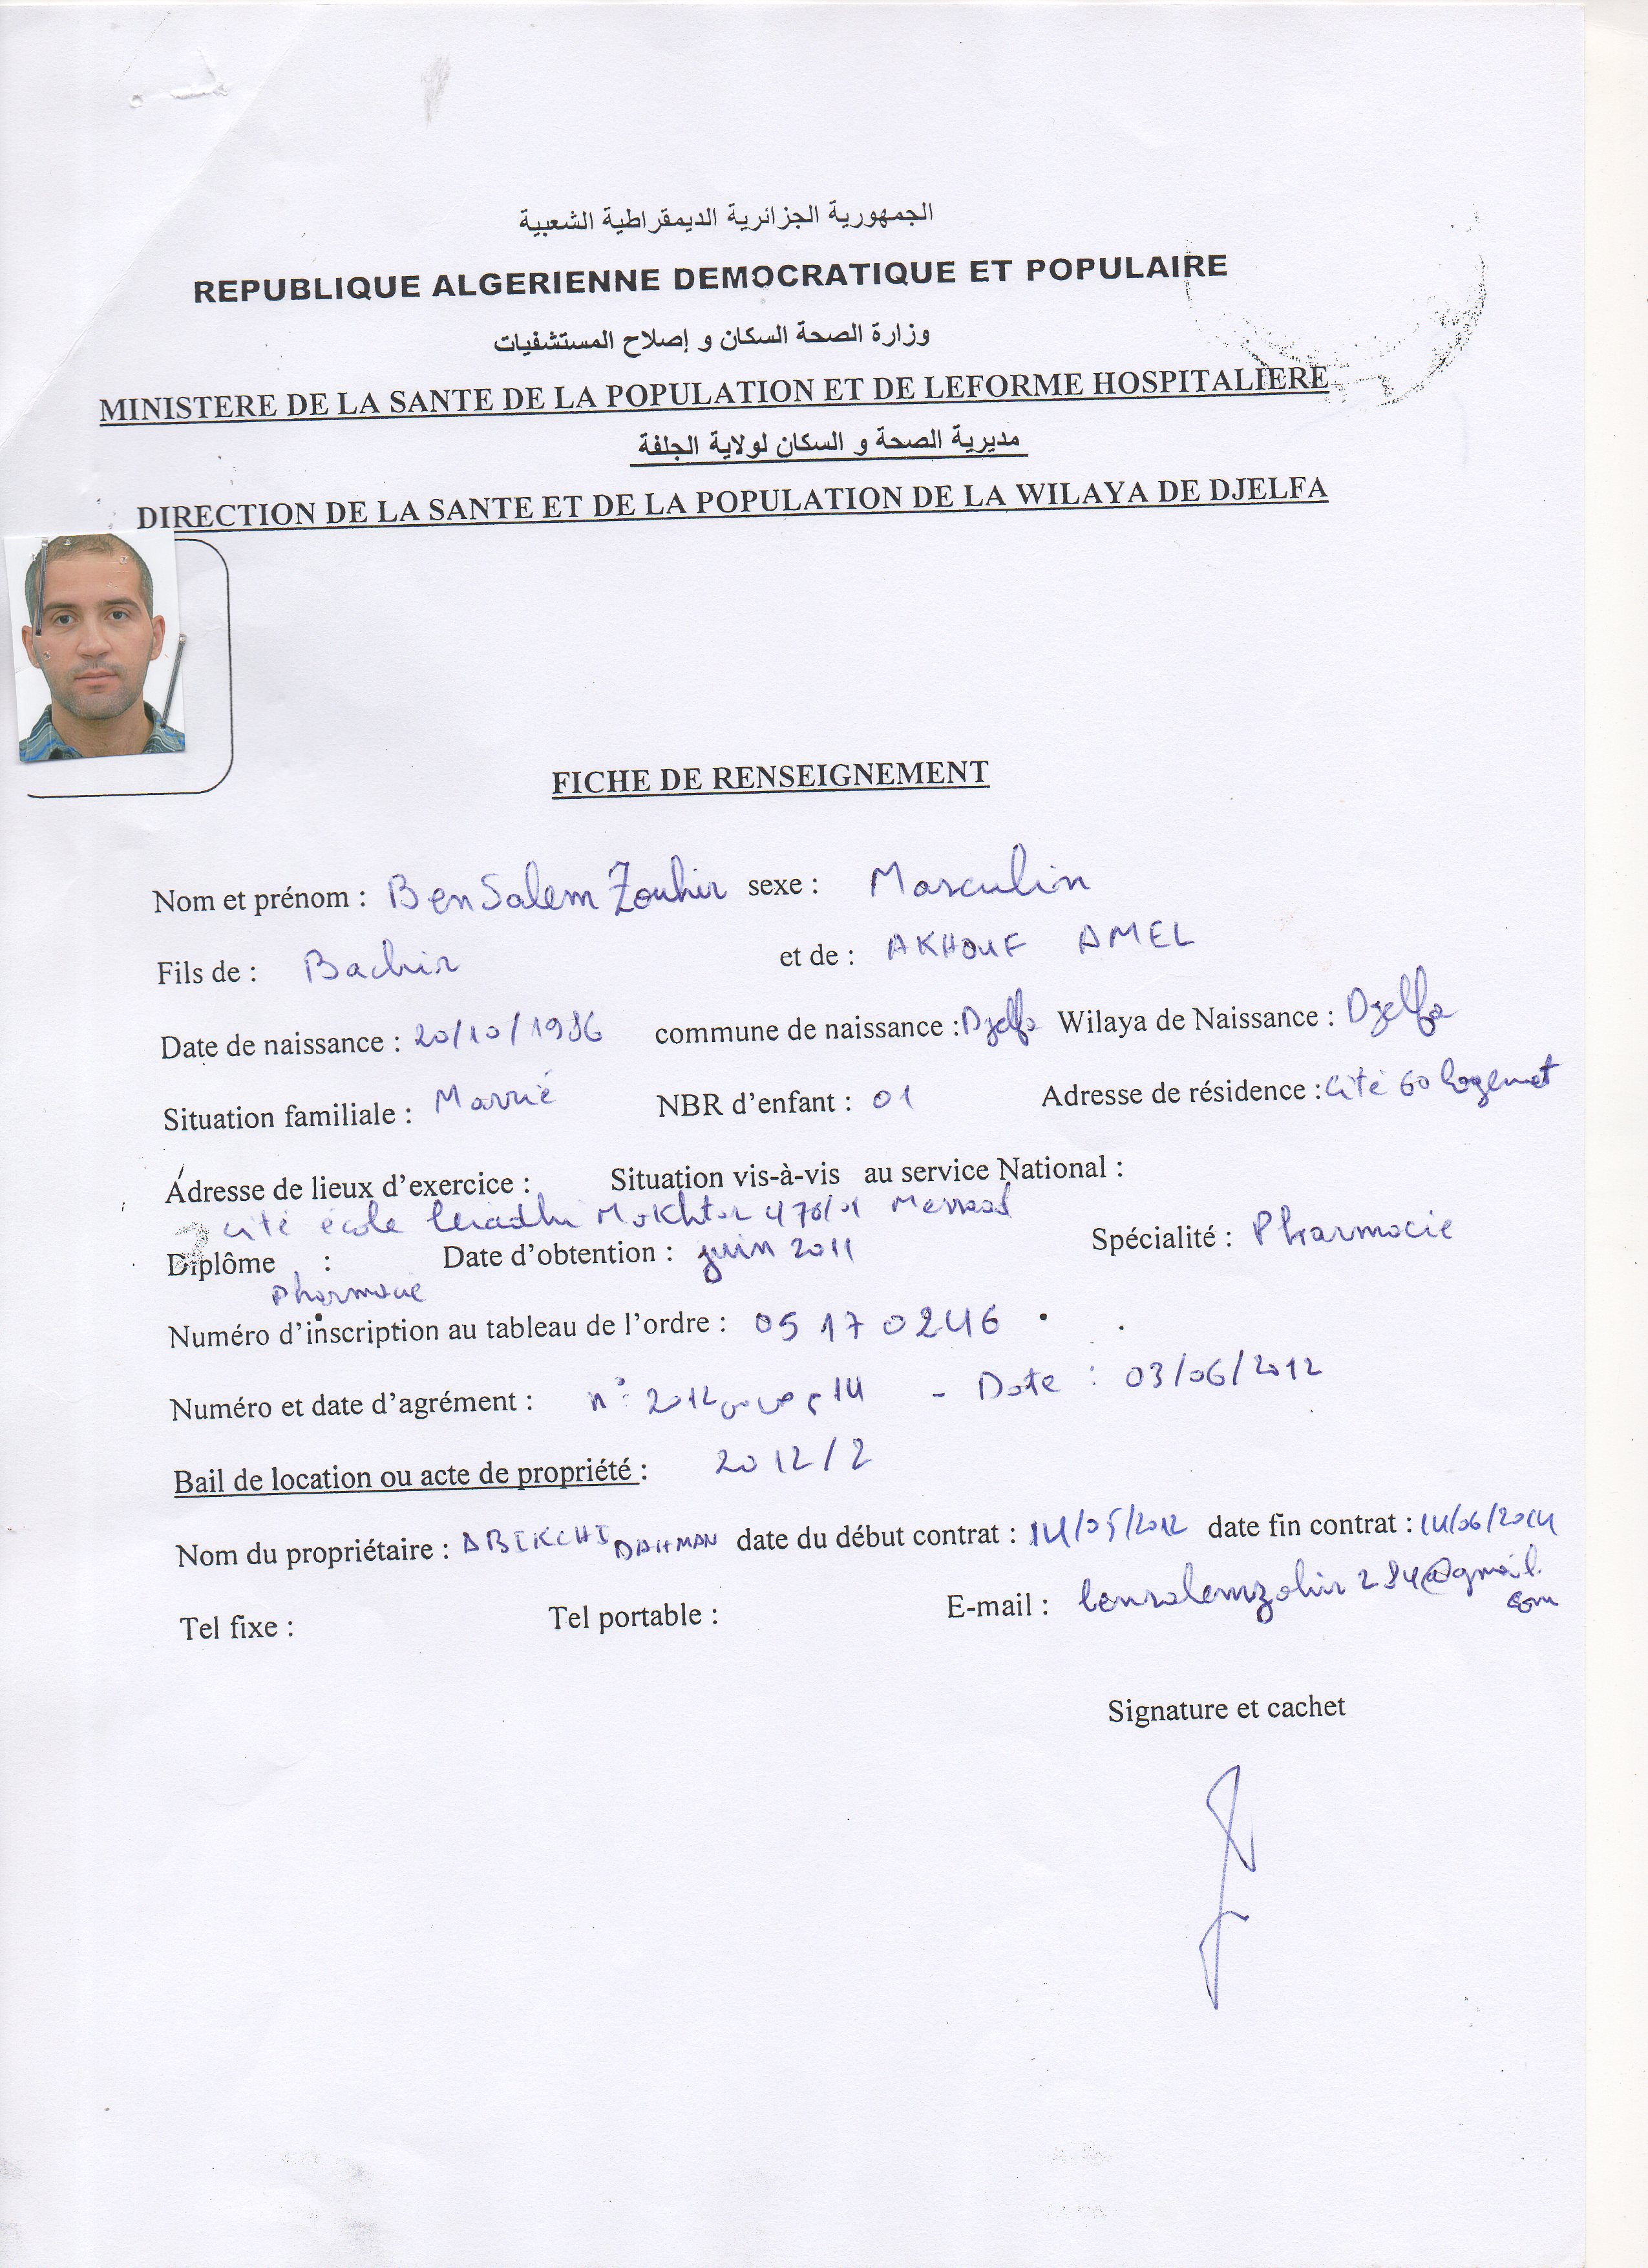 الجمهورية الجزائرية الديمقراطية الشعبية
REPUBLIQUE ALGERIENNE DEMOCRATIQUE ET POPULAIRE
وزارة الصحة السكان و إصلاح المستشفيات
MINISTERE DE LA SANTE DE LA POPULATION ET DE LEFORME HOSPITALIERE
مديرية الصحة و السكان لولاية الجلفة
DIRECTION DE LA SANTE ET DE LA POPULATION DE LA WILAYA DE DJELFA
FICHE DE RENSEIGNEMENT
Nom et prénom : BenSalem Zouhir sexe : Masculin
Fils de : Bachir et de : AKHOUF AMEL
Date de naissance : 20/10/1986 commune de naissance : Djelfa Wilaya de Naissance : Djelfa
Situation familiale : Marrié NBR d’enfant : 01 Adresse de résidence : Cité 60 Logemet
Adresse de lieux d’exercice : Situation vis-à-vis au service National :
cité école Mokhtar Messad
Diplôme : Date d’obtention : juin 2011 Spécialité : Pharmacie
Pharmacie
Numéro d’inscription au tableau de l’ordre : 05 17 0246
Numéro et date d’agrément : n° - Date : 03/06/2012
Bail de location ou acte de propriété : 2012/2
Nom du propriétaire : DAHMAN date du début contrat : 14/05/2012 date fin contrat : 14/06/2014
Tel fixe : Tel portable : E-mail : bensalemzohir284@gmail.
com
Signature et cachet